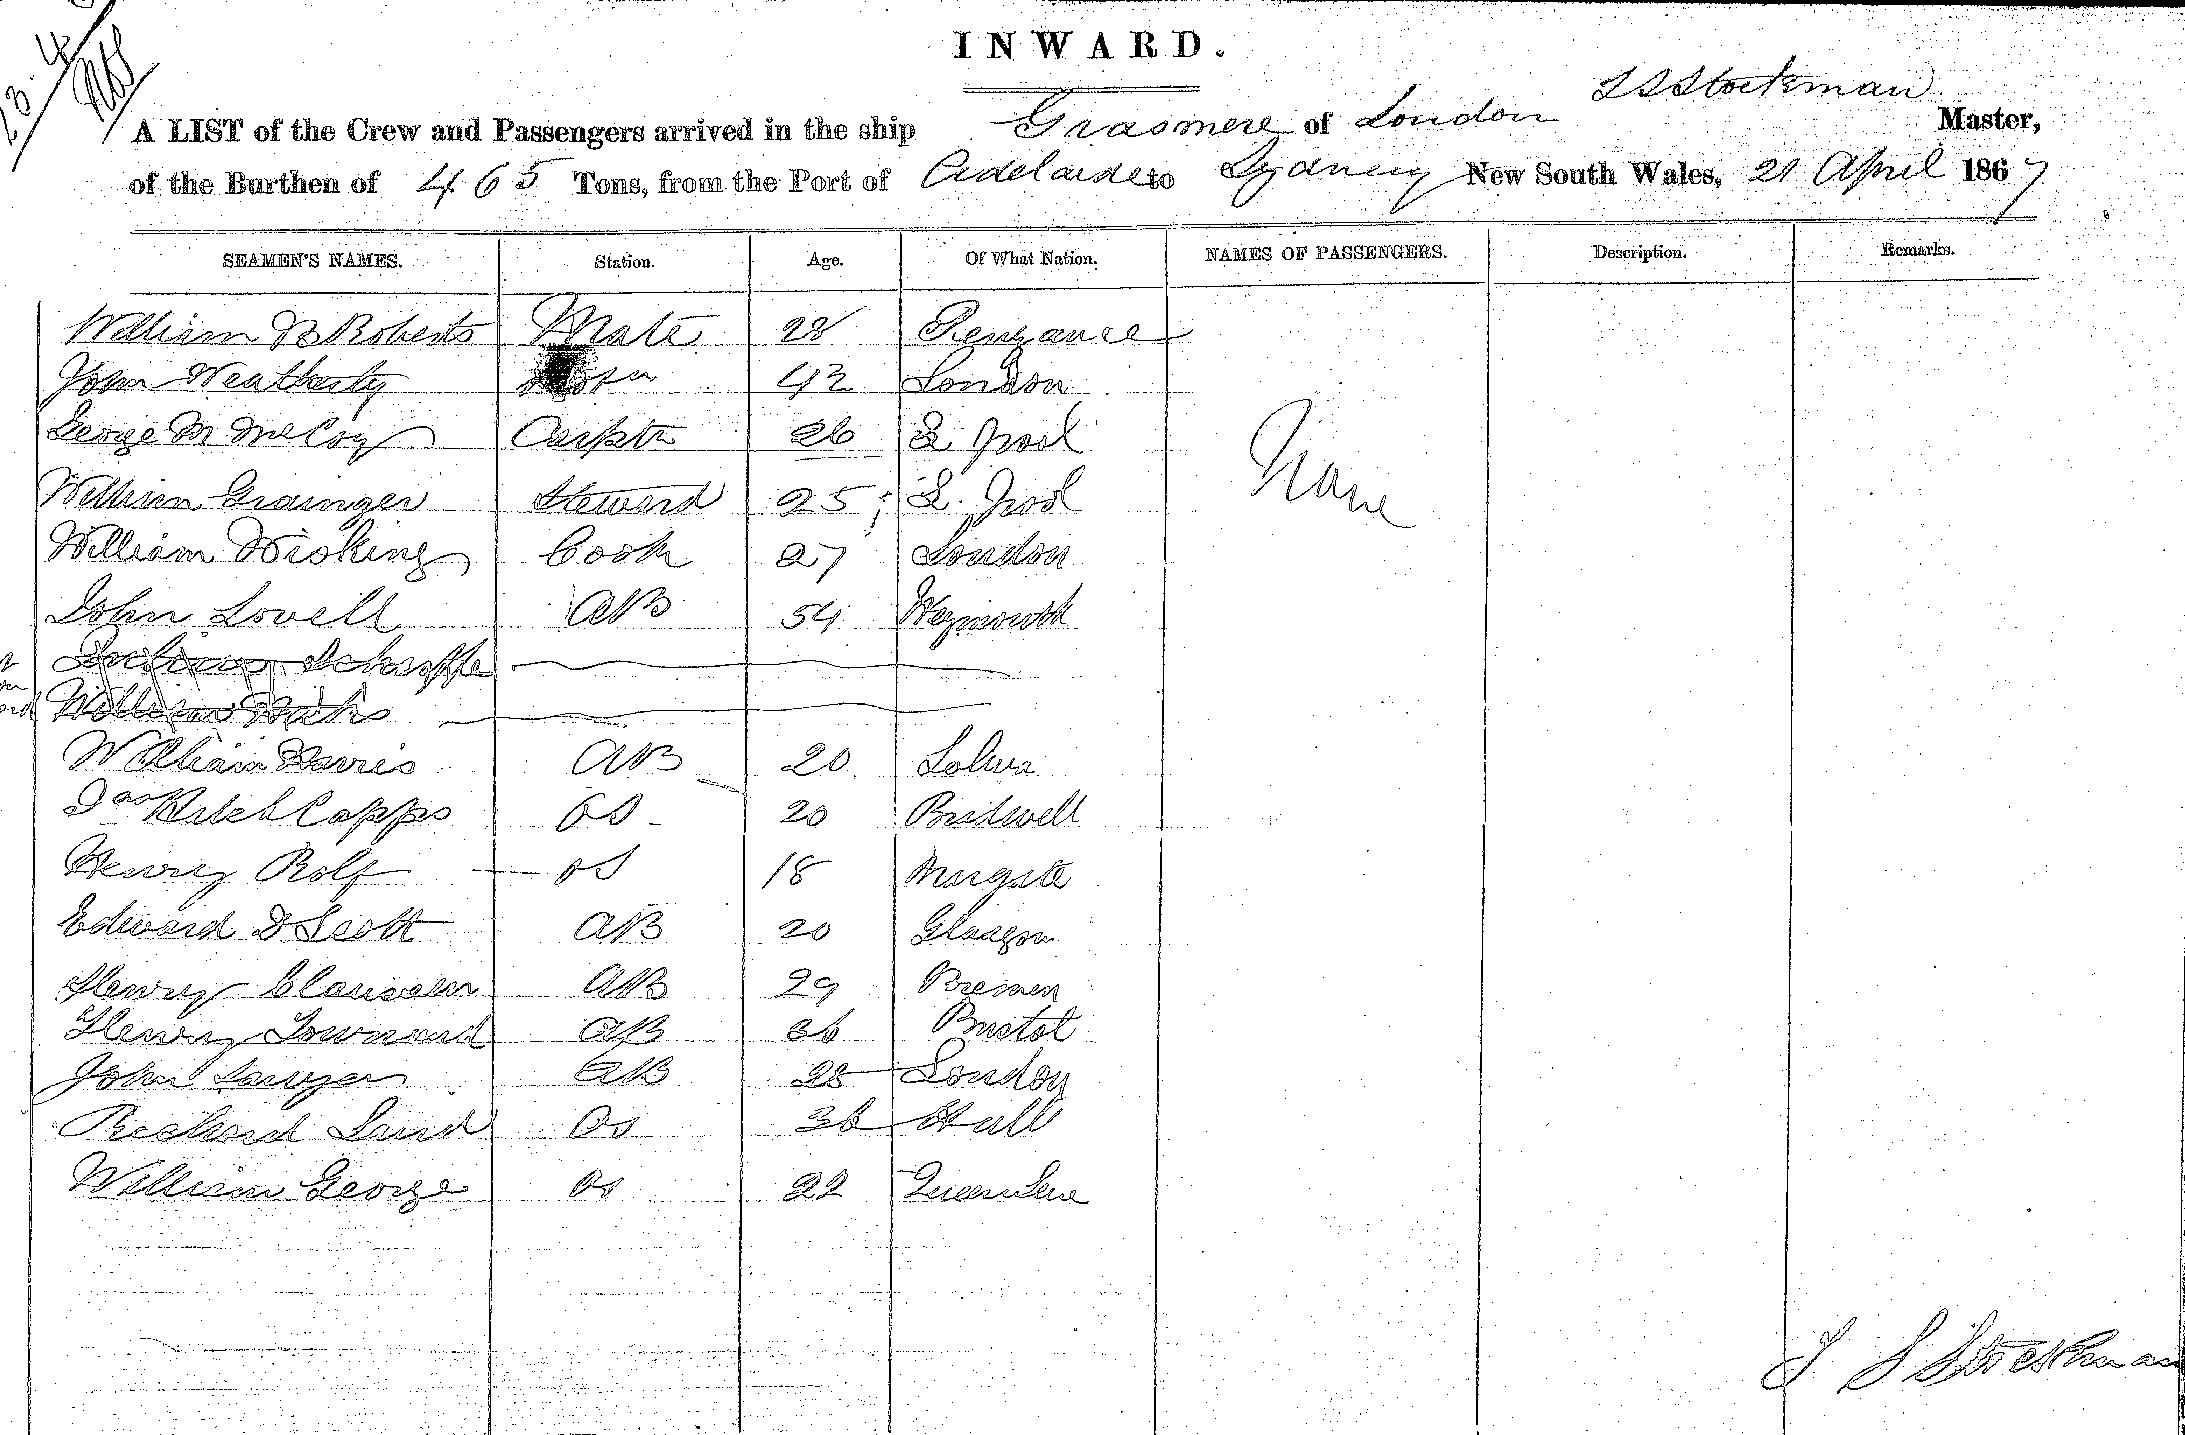 INWARD.
A LIST of the Crew and Passengers arrived in the ship Grasmere of London S S Stockman Master,
of the Burthen of 465 Tons, from the Port of Adelaide to Sydney New South Wales, 21 April 1867
SEAMEN'S NAMES. Station. Age. Of What Nation. NAMES OF PASSENGERS. Description. Remarks.
William B Roberts Mate 28 Penzance
John Weatherly 42 London
George M McCoy Carptr 26 L. Pool
None
William Grainger Steward 25 L. Pool
William Wisking Cook 27 London
John Lovell AB 54 Weymouth
Schuffle
William
William Harris AB 20
Jas Capps OS 20 Bridwell
Henry Rolf OS 18 Margate
Edward D Scott AB 20 Glasgow
Henry Claussen AB 29 Bremen
Henry Townsend AB 36 Bristol
John Sawyer AB 28 London
Richard Lund Os 36 Hull
William George Os 22
S Stockman